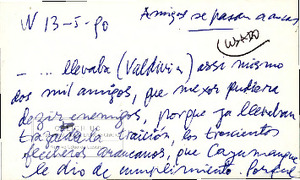 N 13-5-90
Amigos se pasan a aucas,
(USADO)
- ... llevaba (Valdivia) assi mismo
dos mil amigos, que mejor pudiera
dezir enemigos, porque ya llevaban
tragada la traición, los trescientos
flecheros araucanos, que Cayumangue
le dio de cumplimiento. Porque